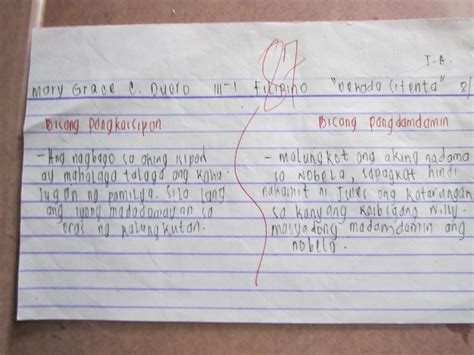 87
I-A.
Mary Grace C. Duoro III-1 Filipino "Dekada Sitenta" 8/
Bisang Pangkaisipan
- Ang nagbago sa aking isipan
ay mahalaga talaga ang kahu
lugan ng pamilya. Sila lang
ang iyong madadamayan sa
oras ng kalungkutan.
Bisang pangdamdamin
- malungkot ang aking nadama
sa nobela, sapagkat hindi
nakamit ni Jules ang katarungan
sa kanyang kaibigang Willy.
masyadong madamdamin ang
nobela.